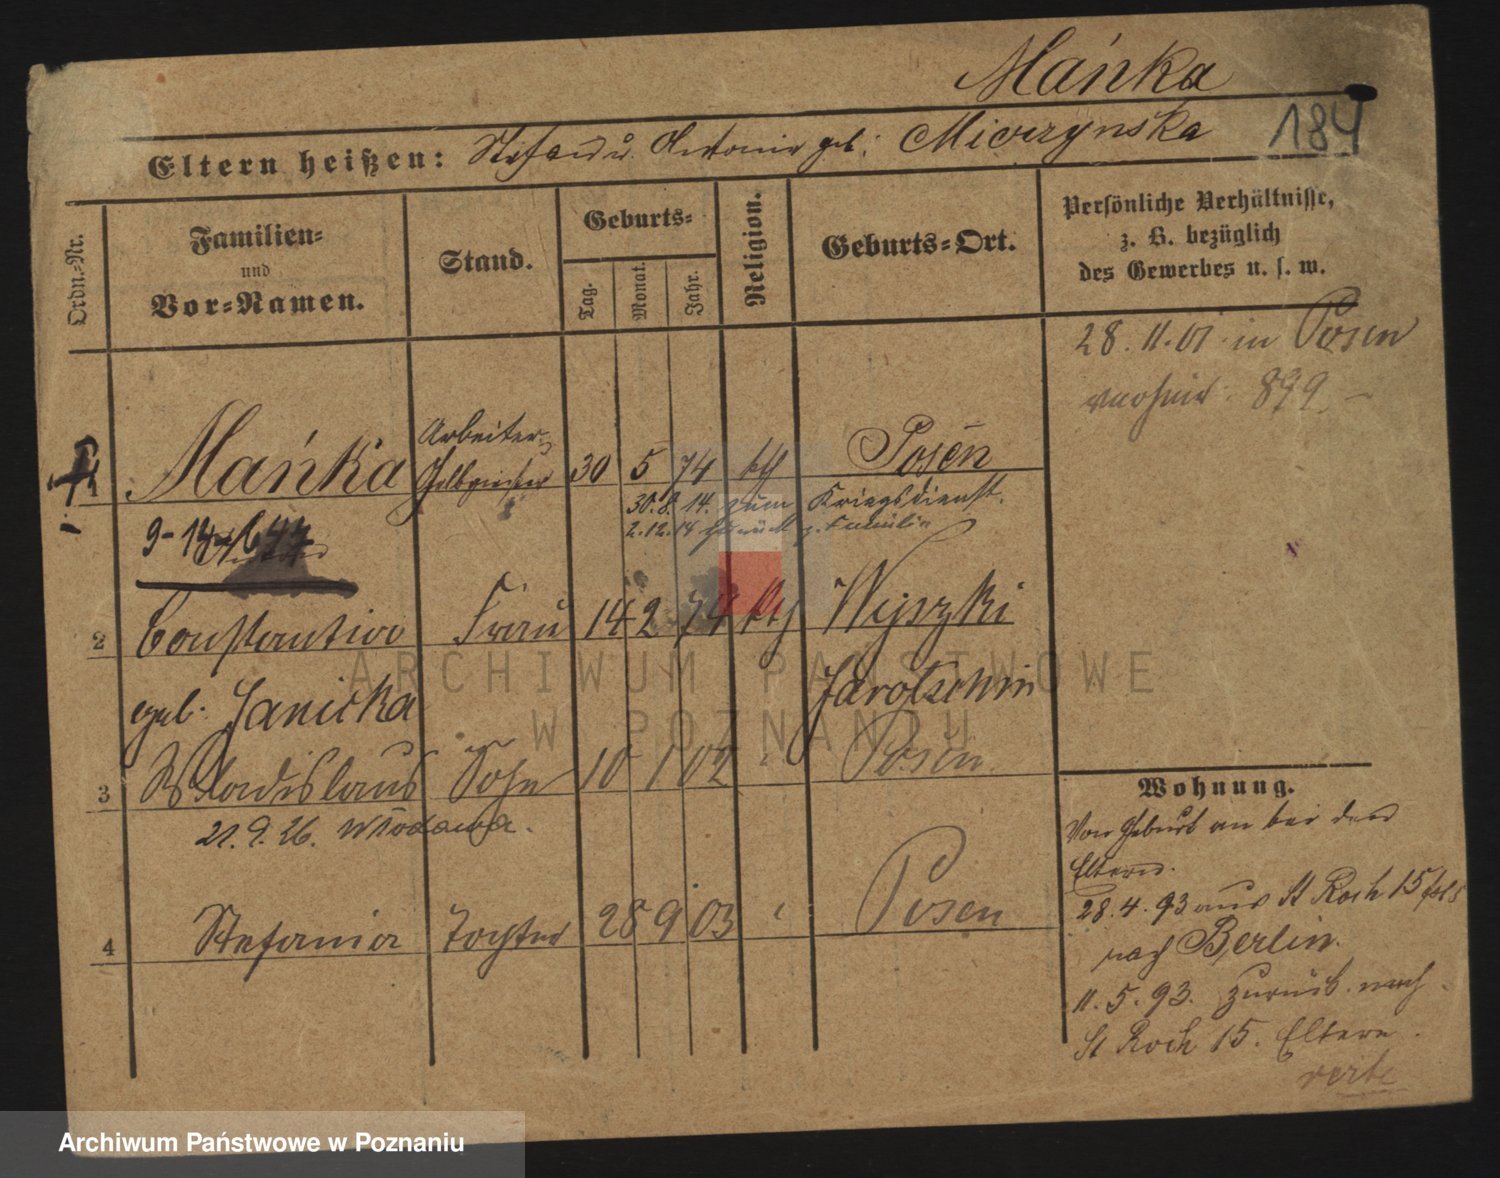 Mańka
184
Eltern heißen: Stefan u. Antonie geb. Miczynska
Ordn.=Nr.
Familien=
und
Vor=Namen.
Stand.
Geburts=
Tag.
Monat.
Jahr.
Religion.
Geburts=Ort.
Persönliche Verhältnisse,
z. B. bezüglich
des Gewerbes u. s. w.
28. 11. 01 in Posen
899.
Arbeiter
1 Mańka 30 5 74 kth Posen
30. 8. 14. zum Kriegsdienst.
2. 12. 14 zurück z. Familie
2 Constantia Frau 14 2 74 kth Wyszki
geb. Janicka Jarotschin
3 Wladislaus Sohn 10 1 02 Posen
21. 9. 26. Włodawa.
4 Stefania Tochter 28 9 03 Posen
Wohnung.
Von Geburt an bei den
Eltern.
28. 4. 93 aus St Roch 15
nach Berlin.
11. 5. 93. zurück nach
St Roch 15. Eltern.
verte
ARCHIWUM PAŃSTWOWE
W POZNANIU
Archiwum Państwowe w Poznaniu